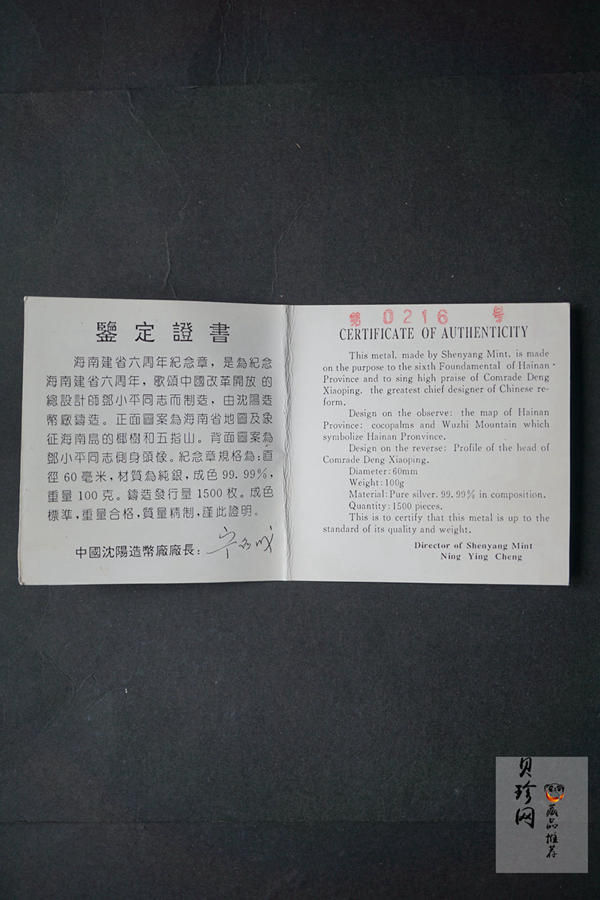 鑒定證書
海南建省六周年紀念章，是為紀念
海南建省六周年，歌頌中國改革開放的
總設計師鄧小平同志而制造，由沈陽造
幣廠鑄造。正面圖案為海南省地圖及象
征海南島的椰樹和五指山。背面圖案為
鄧小平同志側身頭像。紀念章規格為：直
徑60毫米，材質為純銀，成色99.99%，
重量100克。鑄造發行量1500枚。成色
標準，重量合格，質量精制，謹此證明。
中國沈陽造幣廠廠長：
第 0216 号
CERTIFICATE OF AUTHENTICITY
This metal, made by Shenyang Mint, is made
on the purpose to the sixth Foundamental of Hainan
Province and to sing high praise of Comrade Deng
Xiaoping, the greatest chief designer of Chinese re-
form.
Design on the observe: the map of Hainan
Province: cocopalms and Wuzhi Mountain which
symbolize Hainan Pronvince.
Design on the reverse: Profile of the head of
Comrade Deng Xiaoping.
Diameter: 60mm
Weight: 100g
Material: Pure silver. 99.99% in composition.
Quantity: 1500 pieces.
This is to certify that this metal is up to the
standard of its quality and weight.
Director of Shenyang Mint
Ning Ying Cheng
贝珍网
藏品推荐